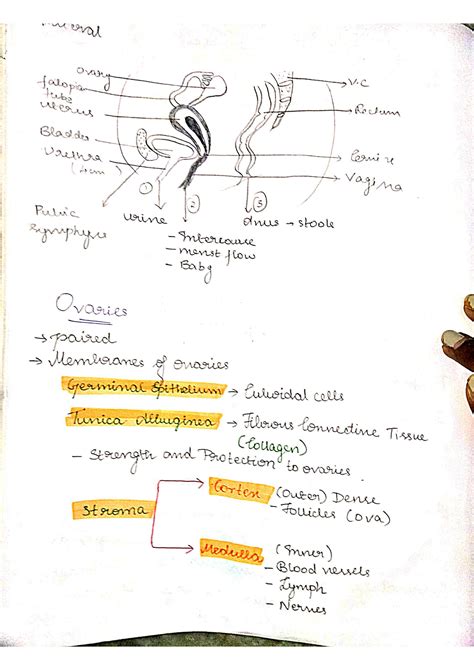 ovary
falopia
tube
uterus
Bladder
Urethra
(4cm)
V.C
Rectum
Cervix
Vagina
Pubic
Symphyse
①
②
③
urine
- Intercourse
- menst flow
- Baby
Anus → stools
Ovaries
→ paired
→ Membranes of ovaries
Germinal Epithelium → Cuboidal cells
Tunica Albuginea → Fibrous Connective Tissue
(Collagen)
- Strength and Protection to ovaries
Stroma
Cortex (Outer) Dense
- Follicles (ova)
Medulla (Inner)
- Blood vessels
- Lymph
- Nerves